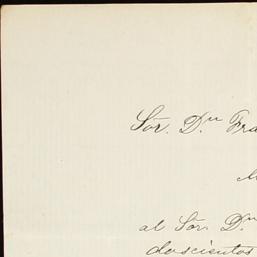 Sór. Dⁿ Fra
al Sór. Dⁿ
doscientos